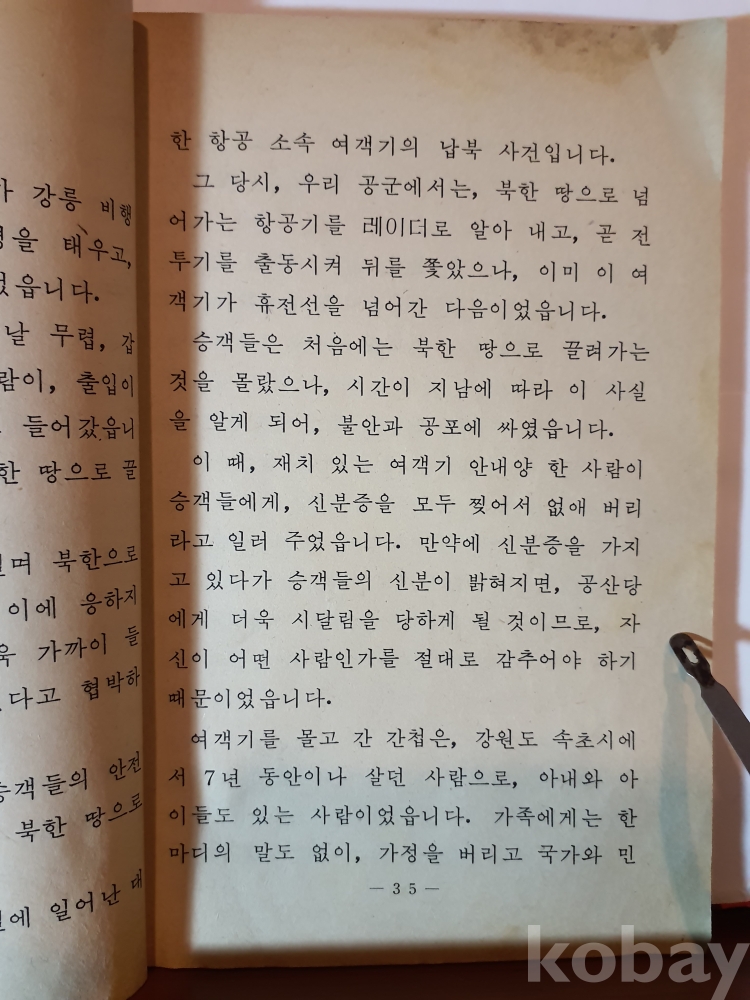 강릉 비행
태우고,
읍니다.
날 무렵, 갑
람이, 출입이
들어갔읍니
한 땅으로 끌
북한으로
이에 응하지
가까이 들
다고 협박하
객들의 안전
북한 땅으로
에 일어난 대
한 항공 소속 여객기의 납북 사건입니다.
그 당시, 우리 공군에서는, 북한 땅으로 넘
어가는 항공기를 레이더로 알아 내고, 곧 전
투기를 출동시켜 뒤를 쫓았으나, 이미 이 여
객기가 휴전선을 넘어간 다음이었읍니다.
승객들은 처음에는 북한 땅으로 끌려가는
것을 몰랐으나, 시간이 지남에 따라 이 사실
을 알게 되어, 불안과 공포에 싸였읍니다.
이 때, 재치 있는 여객기 안내양 한 사람이
승객들에게, 신분증을 모두 찢어서 없애 버리
라고 일러 주었읍니다. 만약에 신분증을 가지
고 있다가 승객들의 신분이 밝혀지면, 공산당
에게 더욱 시달림을 당하게 될 것이므로, 자
신이 어떤 사람인가를 절대로 감추어야 하기
때문이었읍니다.
여객기를 몰고 간 간첩은, 강원도 속초시에
서 7년 동안이나 살던 사람으로, 아내와 아
이들도 있는 사람이었읍니다. 가족에게는 한
마디의 말도 없이, 가정을 버리고 국가와 민
— 35 —
kobay